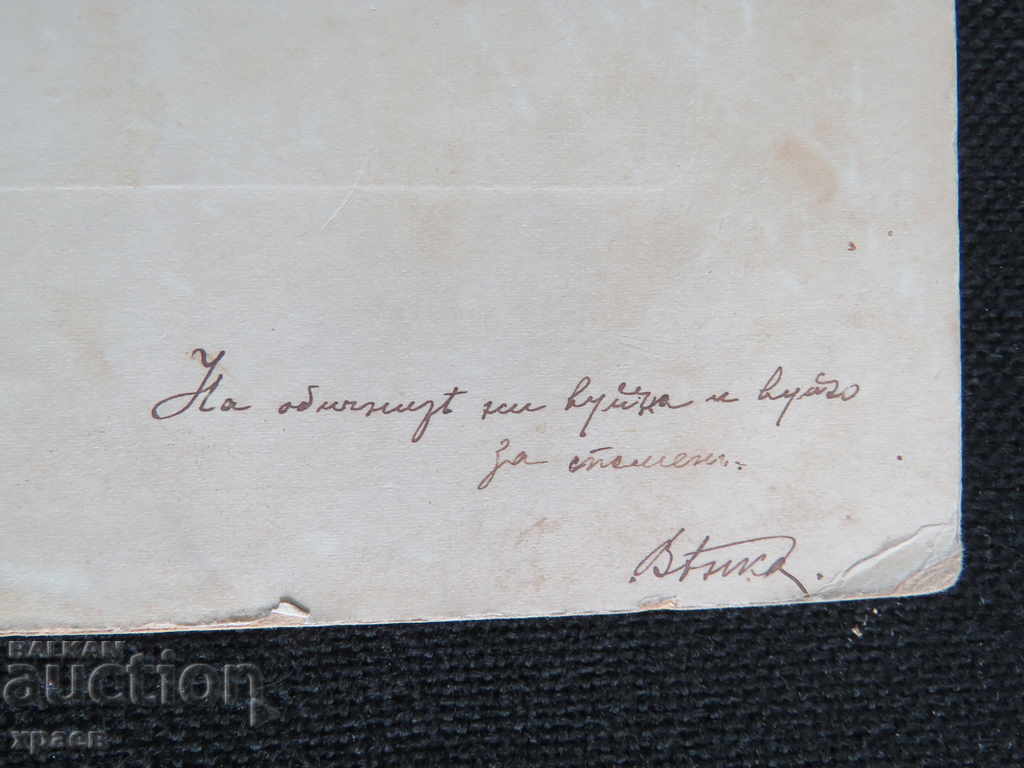 На обичнитѣ ни вуйна и вуйчо
за споменъ.
Вѣнка.
BALKAN
auction
храев